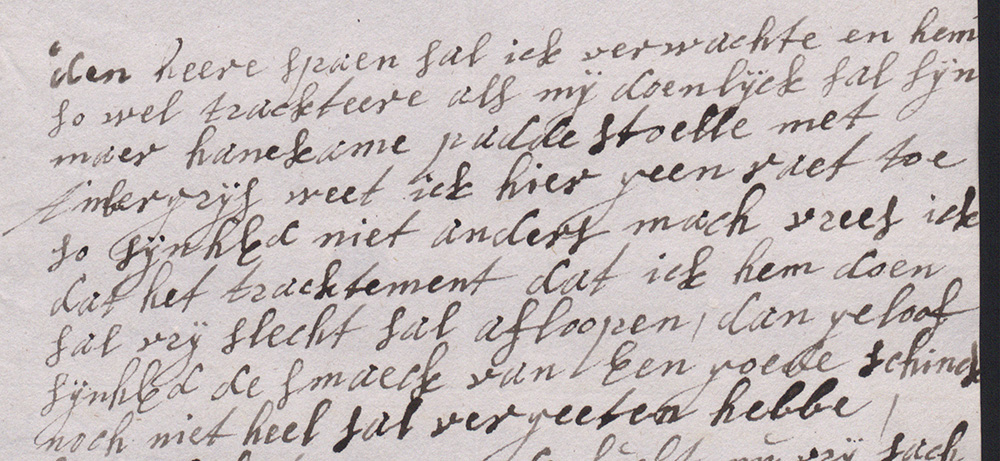 den heere spaen sal ick verwachte en hem
so wel trackteere als mÿ doenlÿck sal sÿn
maer hanekame paddestoelle met
ambergrÿs weet ick hier geen raet toe
so sÿnhEd niet anders mach vrees ick
dat het tracktement dat ick hem doen
sal vrÿ slecht sal afloopen, dan geloof
sÿnhEd de smaeck van Een goede schinck
noch niet heel sal vergeeten hebbe,
vrÿ sach